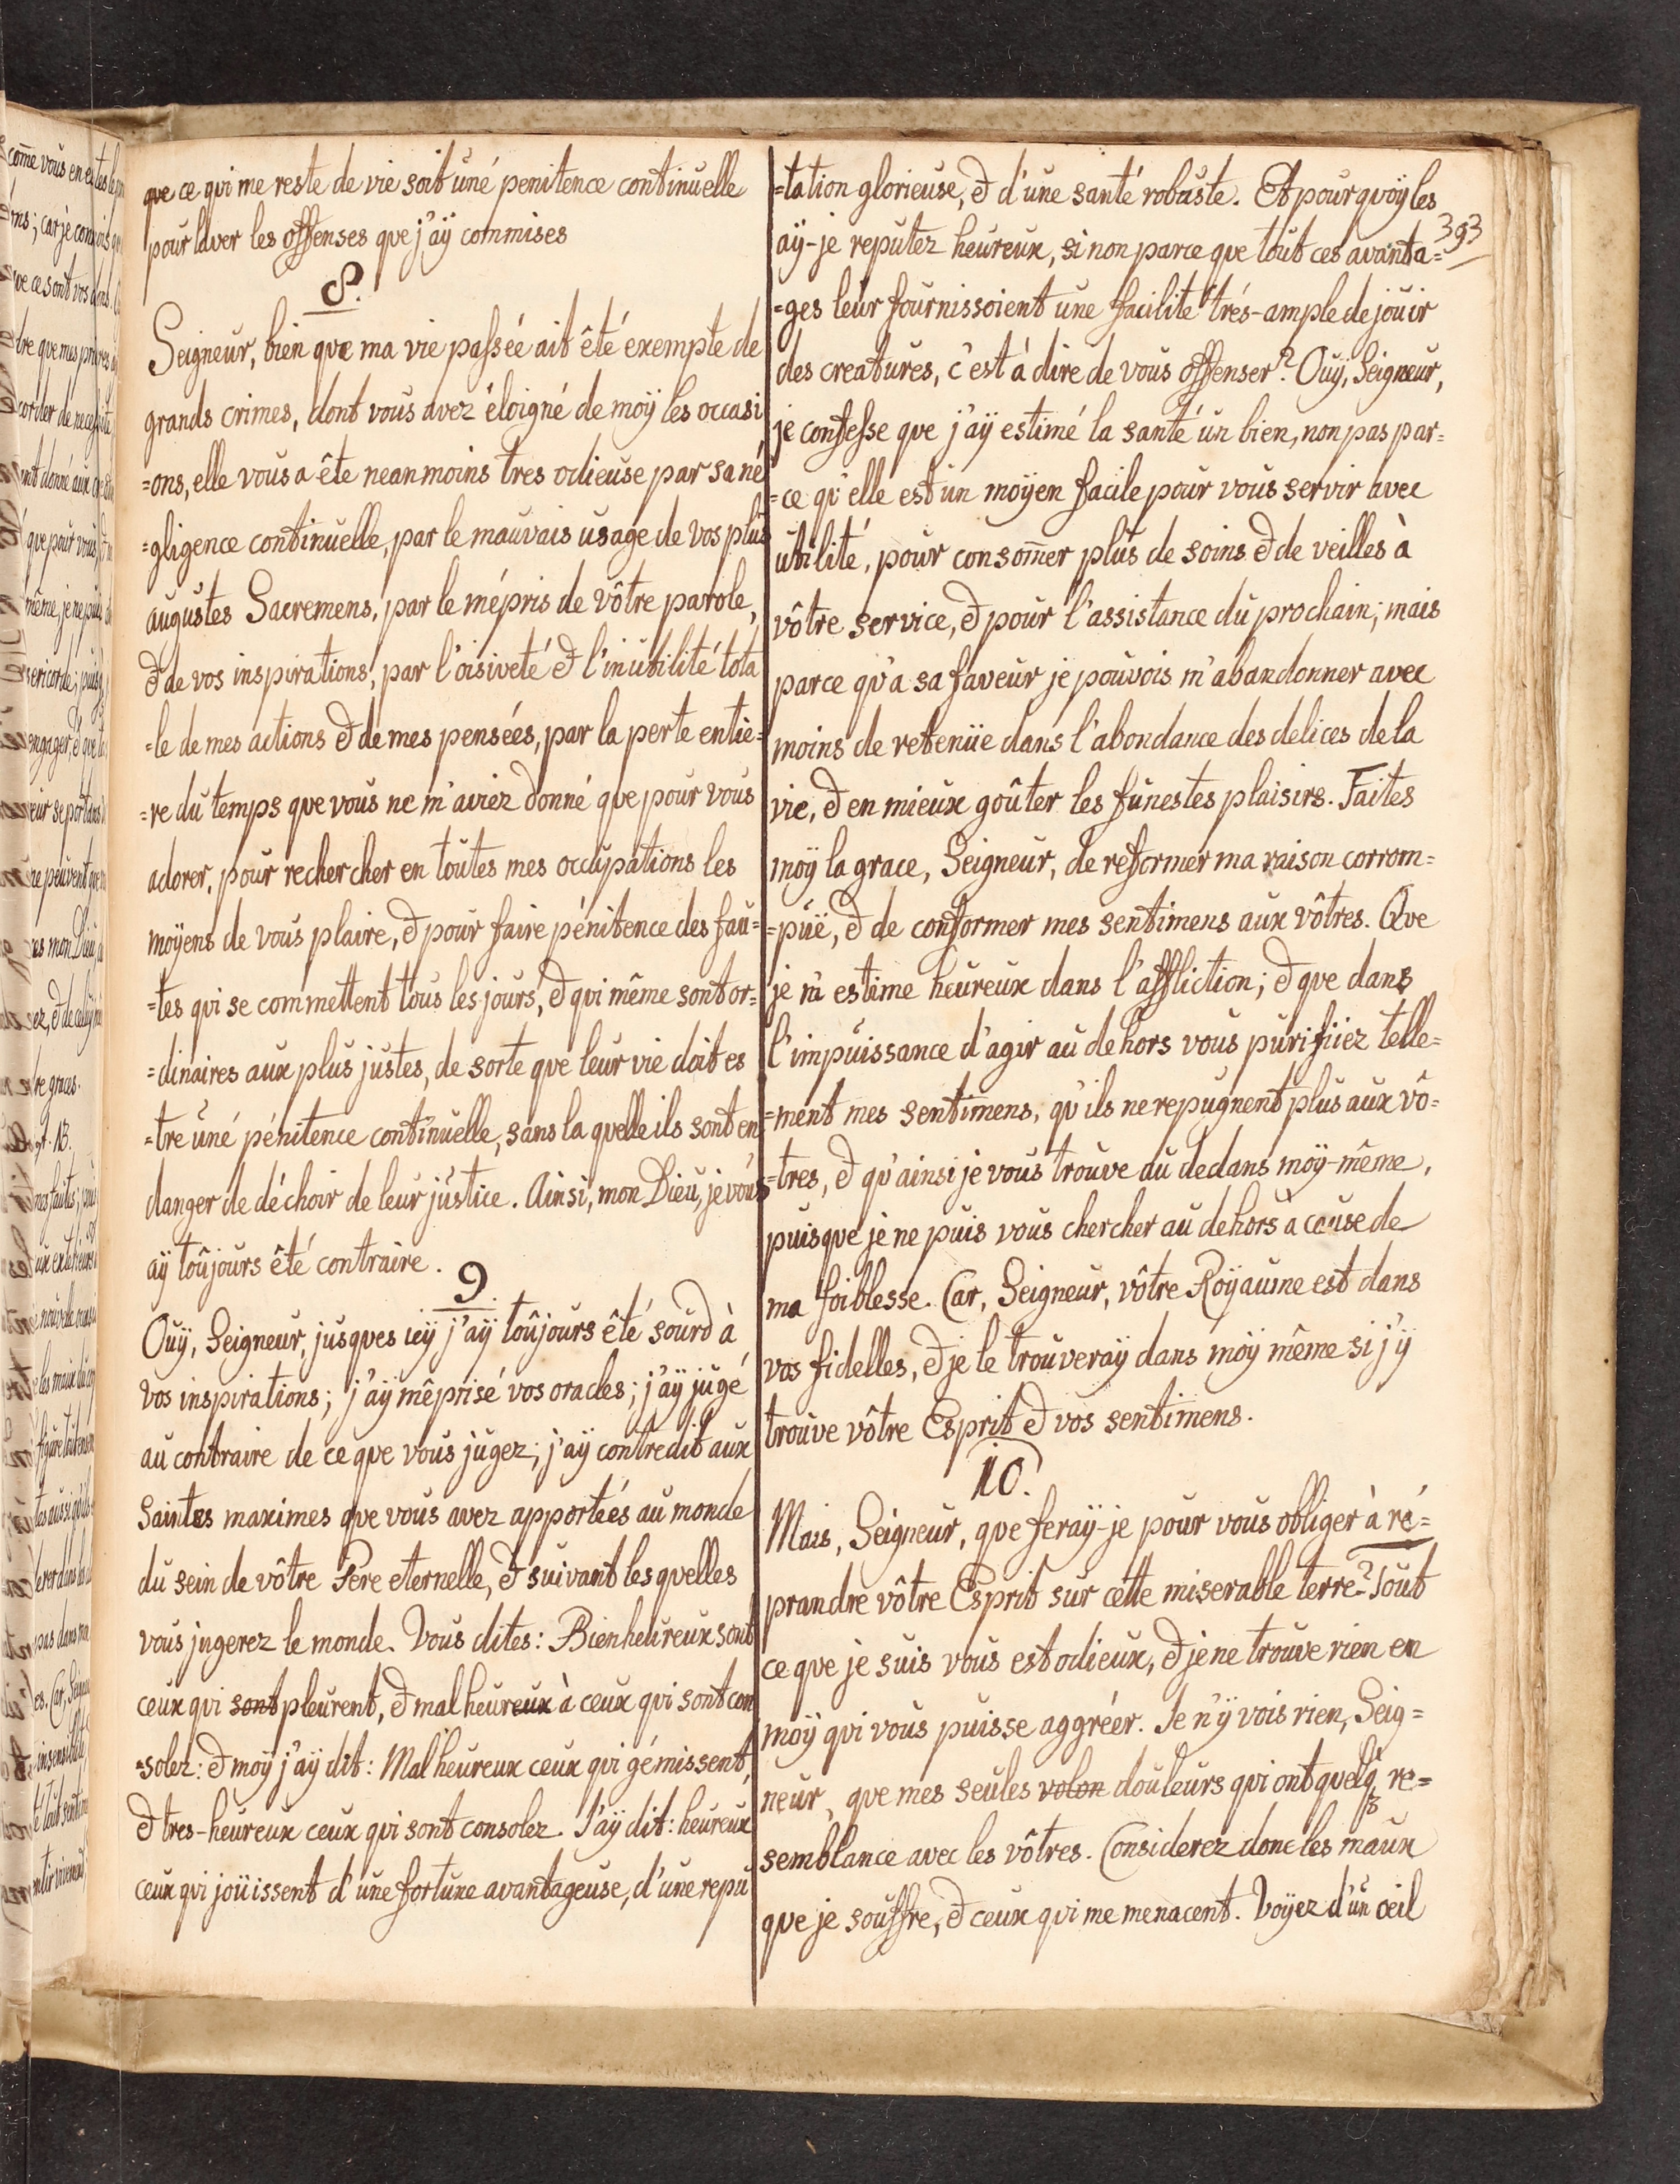 que ce qui me reste de vie soit uné penitence continuelle
pour laver les offenses que j'aÿ commises
8.
Seigneur, bien que ma vie passéé ait êté exempte de
grands crimes, dont vous avez éloigné de moÿ les occasi
=ons, elle vous a ête neanmoins tres odieuse par sa né
=gligence continuelle, par le mauvais usage de vos plus
augustes Sacremens, par le mépris de vôtre parole,
& de vos inspirations, par l'oisiveté & l'inutilité tota
=le de mes actions & de mes penséés, par la perte entie=
=re du temps que vous ne m'aviez donné que pour vous
adorer, pour rechercher en toutes mes occupations les
moÿens de vous plaire, & pour faire pénitence des fau=
=tes qui se commettent tous les jours, & qui même sont or=
=dinaires aux plus justes, de sorte que leur vie doit es
=tre uné pénitence continuelle, sans la quelle ils sont en
danger de déchoir de leur justice. Ainsi, mon Dieu, je vous
aÿ toûjours êté contraire.
9.
Ouÿ, Seigneur, jusques icÿ j'aÿ toûjours êté sourd à
vos inspirations; j'aÿ mêprisé vos oracles; j'aÿ jugé
au contraire de ce que vous jugez; j'aÿ contredit aux
Saintes maximes que vous avez apportéés au monde
du sein de vôtre Pere eternelle, & suivant les quelles
vous jngerez le monde. Vous dites: Bienheureux sont
ceux qui sont pleurent, & malheureux à ceux qui sont con
=solez: & moÿ j'aÿ dit: Malheureux ceux qui gémissent,
& tres-heureux ceux qui sont consolez. J'aÿ dit: heureux
ceux qui joüissent d'une fortune avantageuse, d'une repu
=tation glorieuse, & d'une santé robuste. Et pourquoÿ les
393
aÿ-je reputez heureux, si non parce que tout ces avanta=
=ges leur fournissoient une facilité trés-ample de jouir
des creatures, c'est à dire de vous offenser? Ouÿ, Seigneur,
je confesse que j'aÿ estimé la santé un bien, non pas par=
=ce qu'elle est un moÿen facile pour vous servir avec
utilité, pour consom̄er plus de soins & de veilles à
vôtre service, & pour l'assistance du prochain; mais
parce qu'a sa faveur je pouvois m'abandonner avec
moins de retenüe dans l'abondance des delices de la
vie, & en mieux goûter les funestes plaisirs. Faites
moÿ la grace, Seigneur, de reformer ma raison corrom=
=puë, & de conformer mes sentimens aux vôtres. Que
je m'estime heureux dans l'affliction; & que dans
l'impuissance d'agir au dehors vous purifiiez telle=
=ment mes sentimens, qu'ils ne repugnent plus aux vô=
=tres, & qu'ainsi je vous trouve au dedans moÿ-même,
puisque je ne puis vous chercher au dehors a cause de
ma foiblesse. Car, Seigneur, vôtre Roÿaume est dans
vos fidelles, & je le trouveraÿ dans moÿ même si j'ÿ
trouve vôtre Esprit & vos sentimens.
10.
Mais, Seigneur, que feraÿ-je pour vous obliger à ré=
prandre vôtre Esprit sur cette miserable terre? Tout
ce que je suis vous est odieux, & je ne trouve rien en
moÿ qui vous puisse aggréér. Je n'ÿ vois rien, Seig=
neur, que mes seules volon douleurs qui ont quelq re=
semblance avec les vôtres. Considerez donc les maux
que je souffre, & ceux qui me menacent. Voÿez d'un œil